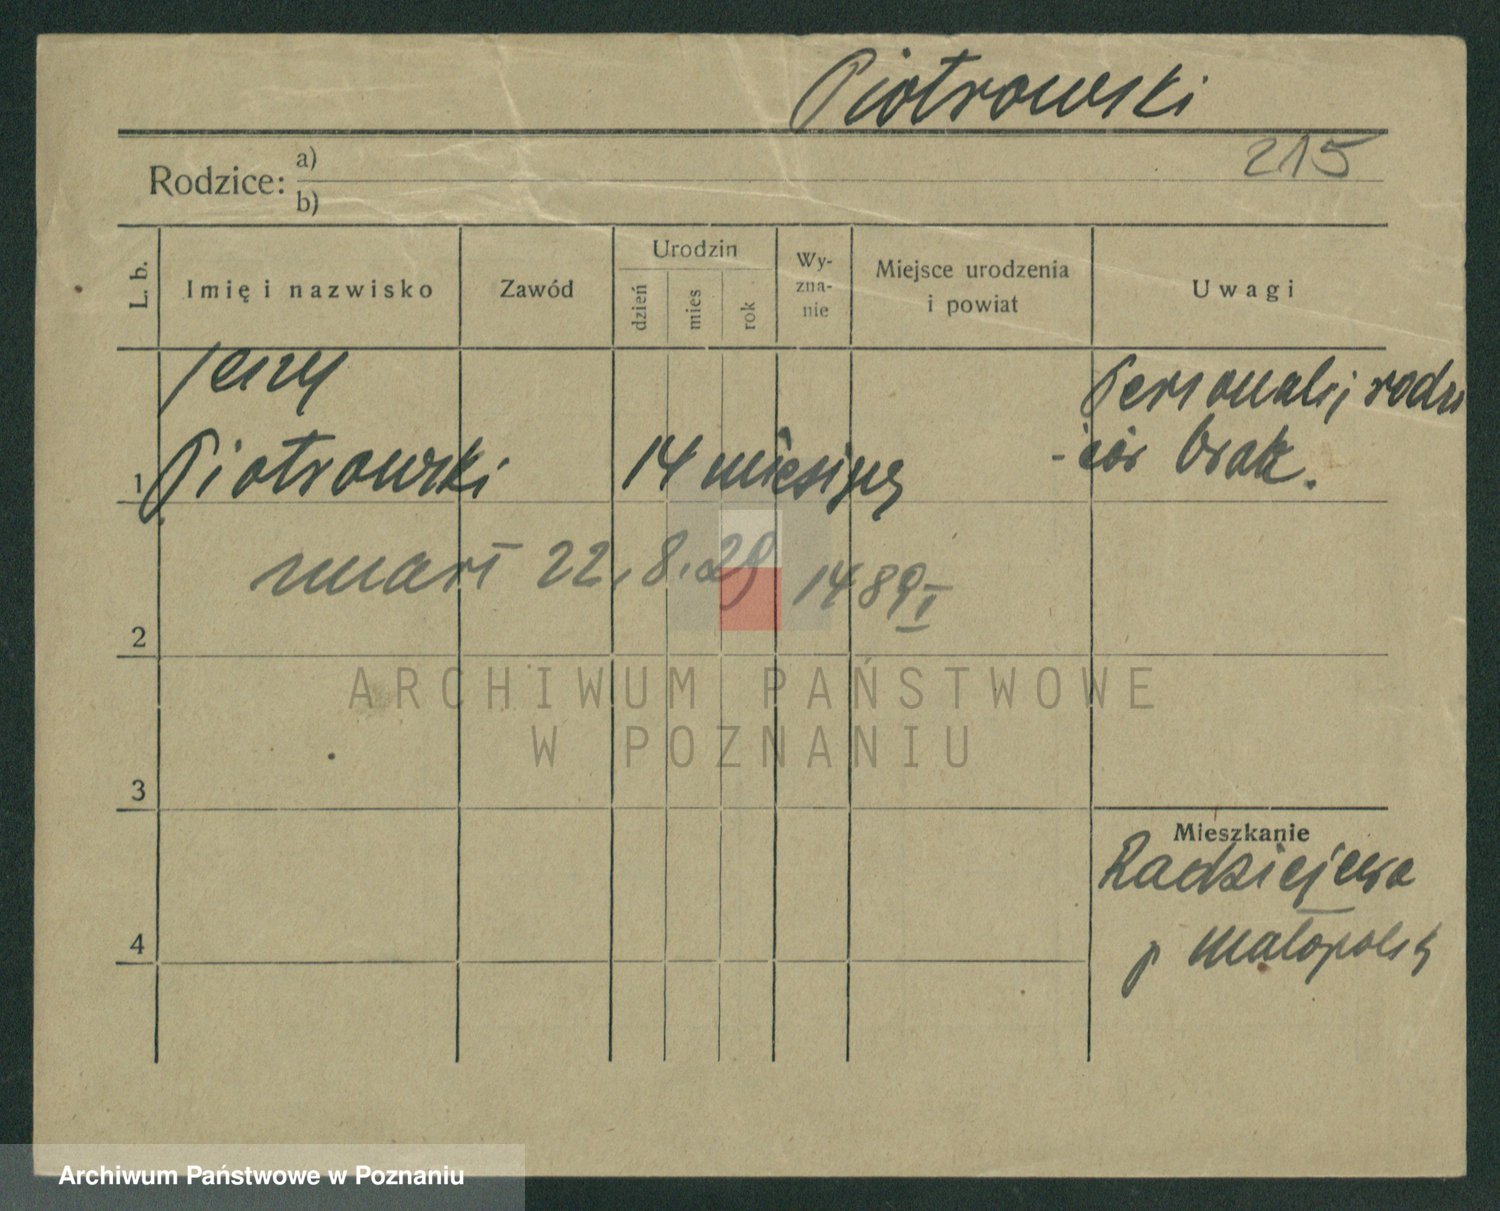 Piotrowski
215
Rodzice: a)
b)
L. b.
Imię i nazwisko
Zawód
Urodzin
dzień
mies
rok
Wy-
zna-
nie
Miejsce urodzenia
i powiat
Uwagi
Jerzy
Piotrowski
14 miesięcy
Personalij rodzi
-ców brak.
1
zmarł 22.8.29 1489 I
2
ARCHIWUM PAŃSTWOWE
W POZNANIU
3
Mieszkanie
Radziejewo
p Małopolsk
4
Archiwum Państwowe w Poznaniu